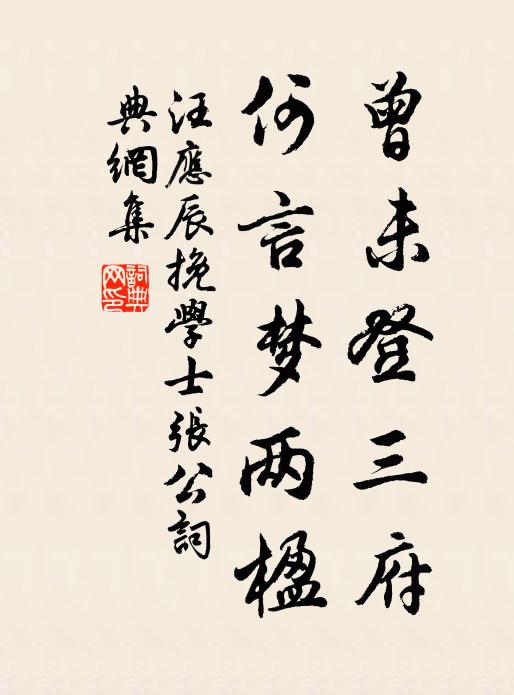 曾未登三府
何言梦两楹
汪應辰挽學士張公詞
典網集
詞典网印